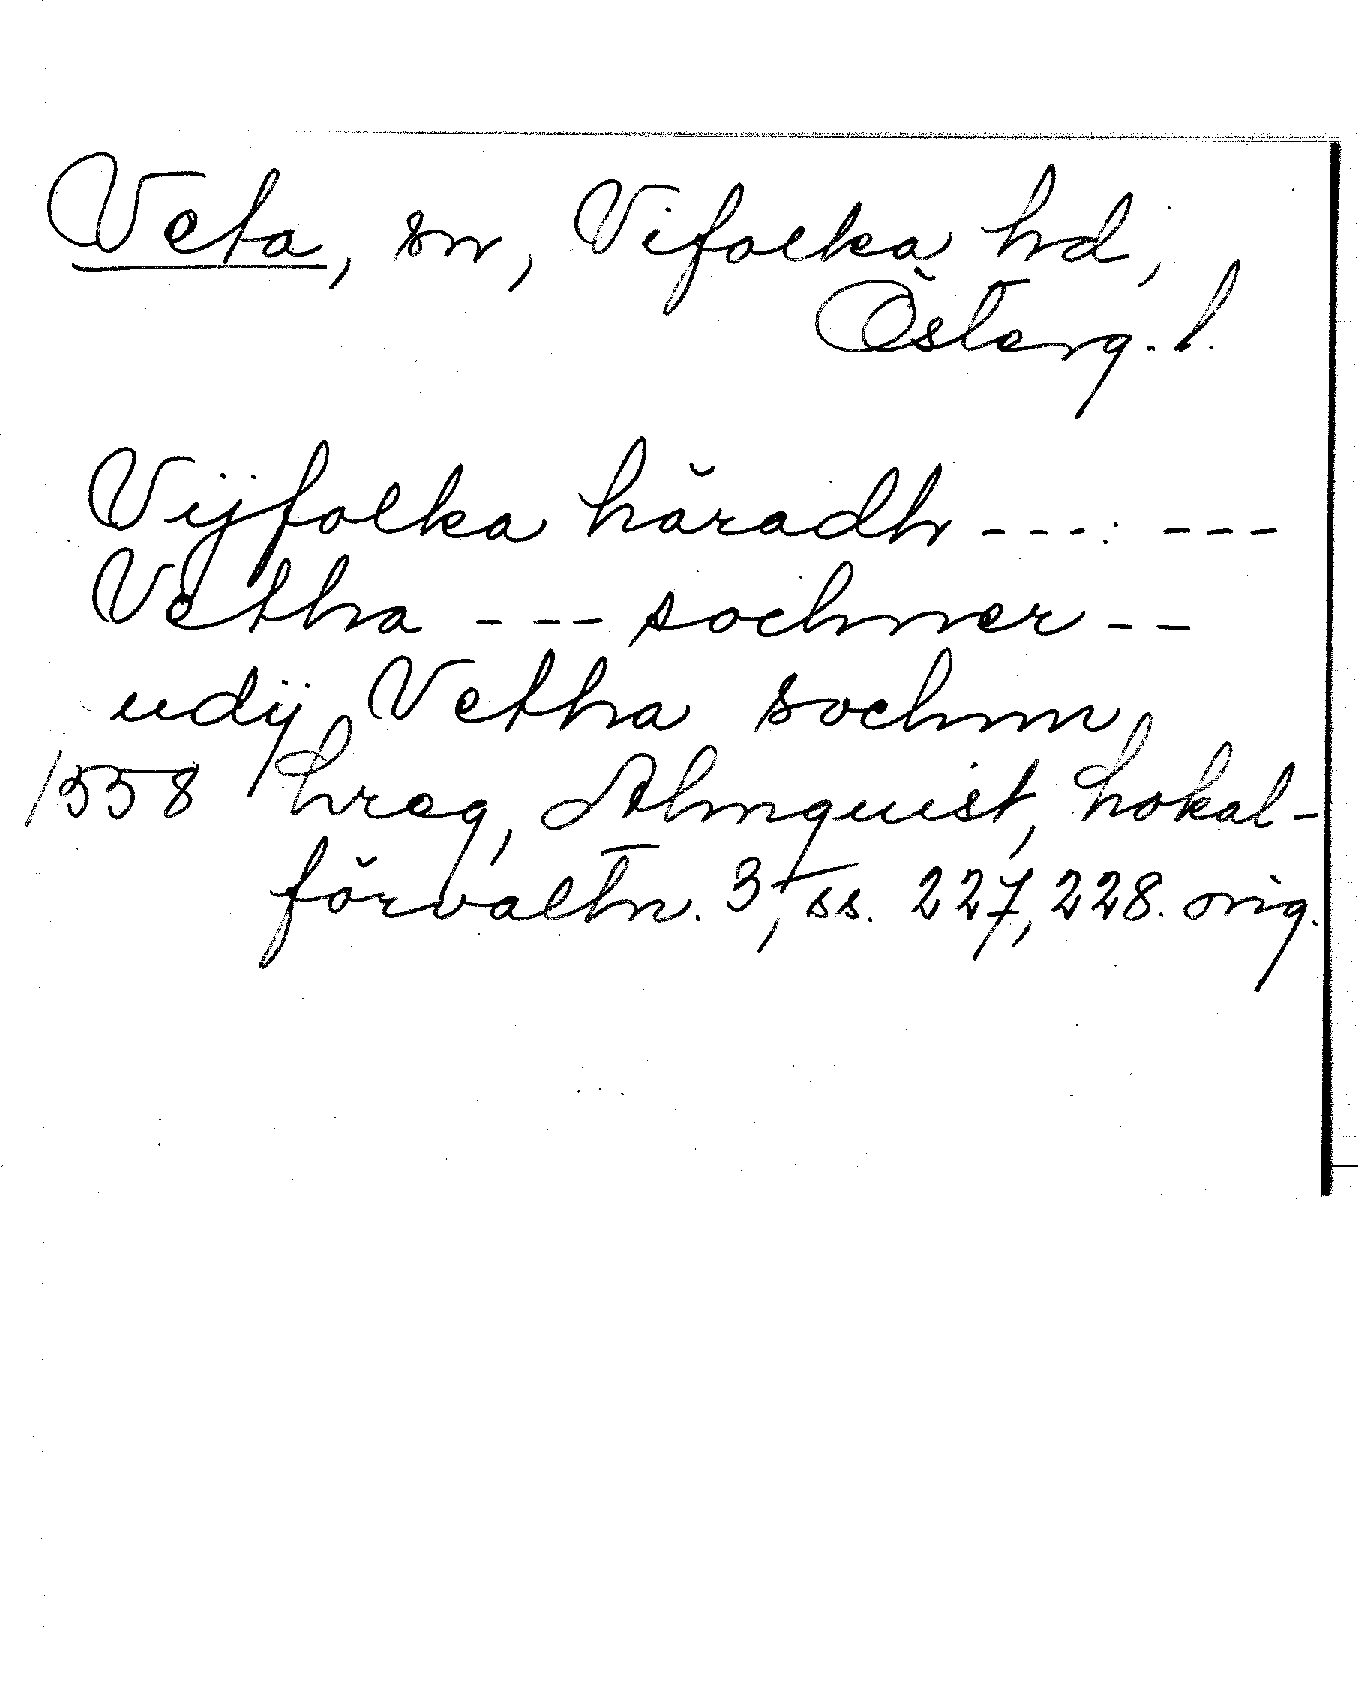 Veta, sn, Vifolka hd,
Österg. l.
Vijfolka häradh ---: ---
Vetha --- sochner --
udij Vetha sochnn
1558 Lreg, Almquist, Lokal-
förvaltn. 3, ss. 227, 228. orig.